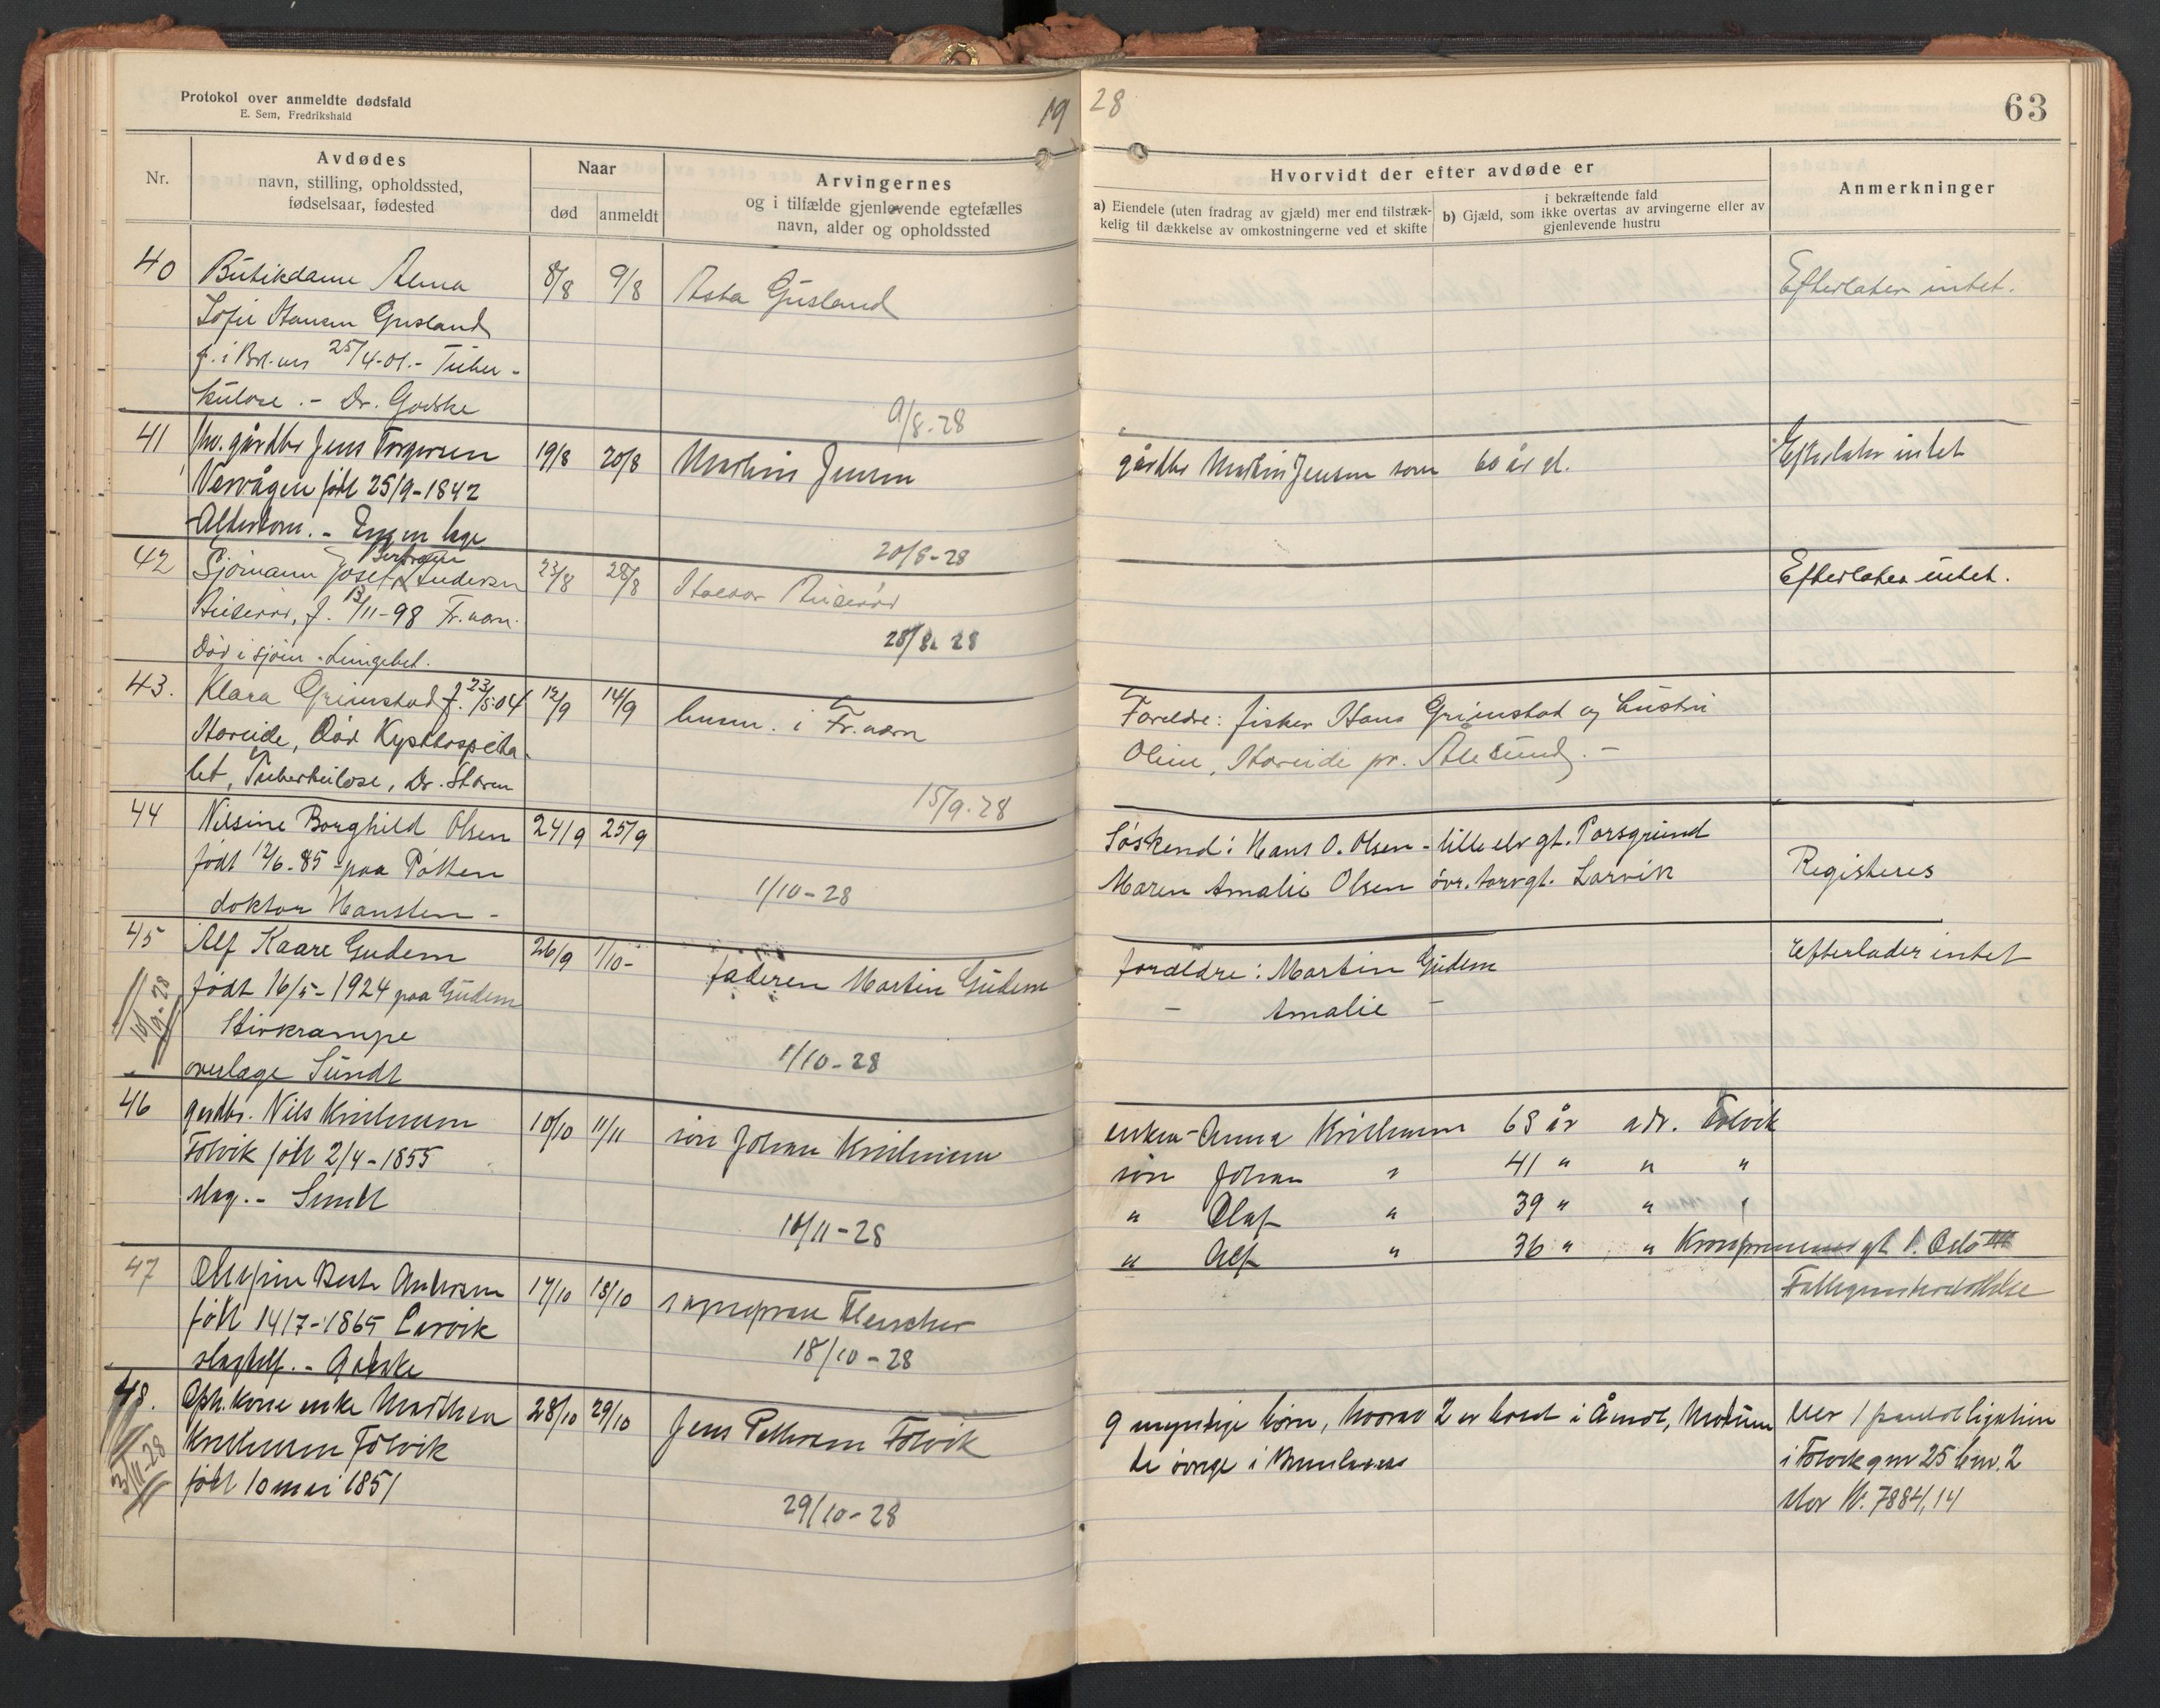 Protokol over anmeldte dødsfald
E. Sem, Fredrikshald
19 28
63
Nr.
Avdødes
navn, stilling, opholdssted,
fødselsaar, fødested
Naar
død
anmeldt
Arvingernes
og i tilfælde gjenlevende egtefælles
navn, alder og opholdssted
Hvorvidt der efter avdøde er
a) Eiendele (uten fradrag av gjæld) mer end tilstræk-
kelig til dækkelse av omkostningerne ved et skifte
i bekræftende fald
b) Gjæld, som ikke overtas av arvingerne eller av
gjenlevende hustru
Anmerkninger
40 Butikdame Alma 8/8 9/8 Asta Gusland Efterlater intet.
Sofie Hansen Gusland
f. i 25/4-01.- Tuber-
kulose.- Dr. Godske
9/8-28
41 gårdbr Jens Torgersen 19/8 20/8 Mathias Jensen gårdbr Mathias Jensen som 60 år gl. Efterlater intet
Nevlungen født 25/9-1842
Alderdom.- Ingen lege
20/8-28
42 Sjømann Josef Andersen 23/8 28/8 Efterlater intet.
Bertran
f. 13/11-98 Fr.vern.
Død i sjøen
28/8. 28
43. Klara Grimstad f. 23/5-04 12/9 14/9 i Fr.vern Foreldre: fisker Hans Grimstad og hustru
Hareide, Død Kysthospita- Oline, Hareide pr. Ålesund.-
let, Tuberkulose, Dr. Støren
15/9-28
44 Nilsine Borghild Olsen 24/9 25/9 Søskend: Hans O. Olsen - lille elv gt. Porsgrund
født 12/6-85 - paa Potten Maren Amalie Olsen øvr. torvgt. Larvik Registeres
doktor Hansten -
1/10-28
45 Alf Kaare Gudem 26/9 1/10- faderen Martin Gudem foreldre: Martin Gudem Efterlader intet
født 16/5-1924 paa Gudem
- Amalie -
Stivkrampe
overlæge Sundt
1/10-28
46 gardbr. Nils Kristensen 10/10 11/11 søn Johan Kristensen enken - Anna Kristensen 68 år adr. Tolvik
Tolvik født 2/4-1855 søn Johan " 41 " " "
slag.- Sundt " Olaf " 39 " " "
10/11-28
" Alf " 36 " " Kronprinsens gt Oslo
47 Andersen 17/10 18/10
født 14/7-1865 Larvik
Godske
18/10-28
48. enke Mathea 28/10 29/10 Jens Pettersen Tolvik 9 myndige børn, hvorav 2 er bosat i Åmot, Modum Eier 1 panteobligation
Kristensen Tolvik de øvrige i Brunlanes i Tolvik gnr 25 bnr. 2
født 10 mai 1851 stor kr. 7884,14
29/10-28